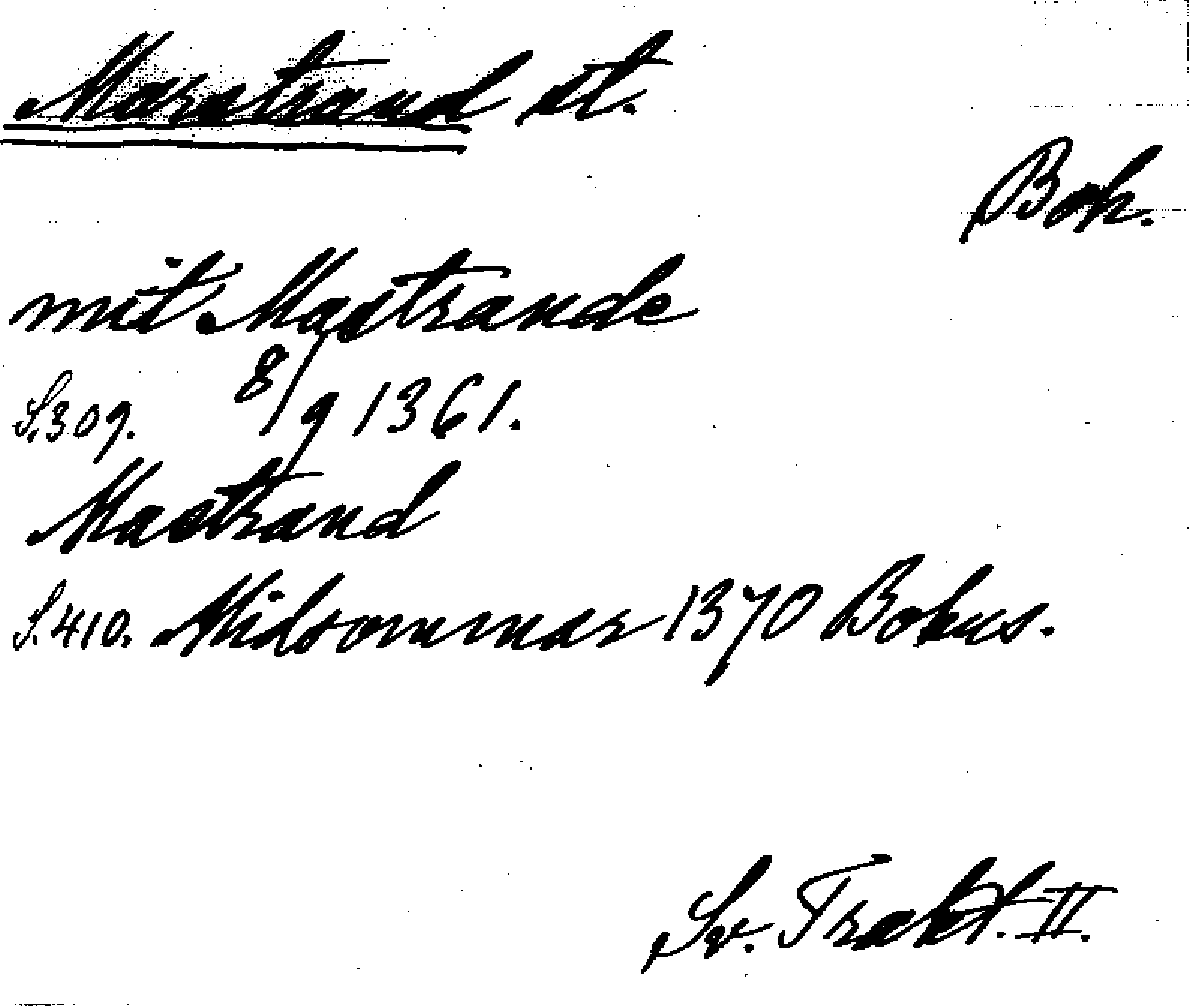 Marstrand st.
Boh.
mit Mastrande
S. 309. 8/9 1361.
Mastrand
S. 410. Midsommar 1370 Bohus.
Sv. Trakt. II.